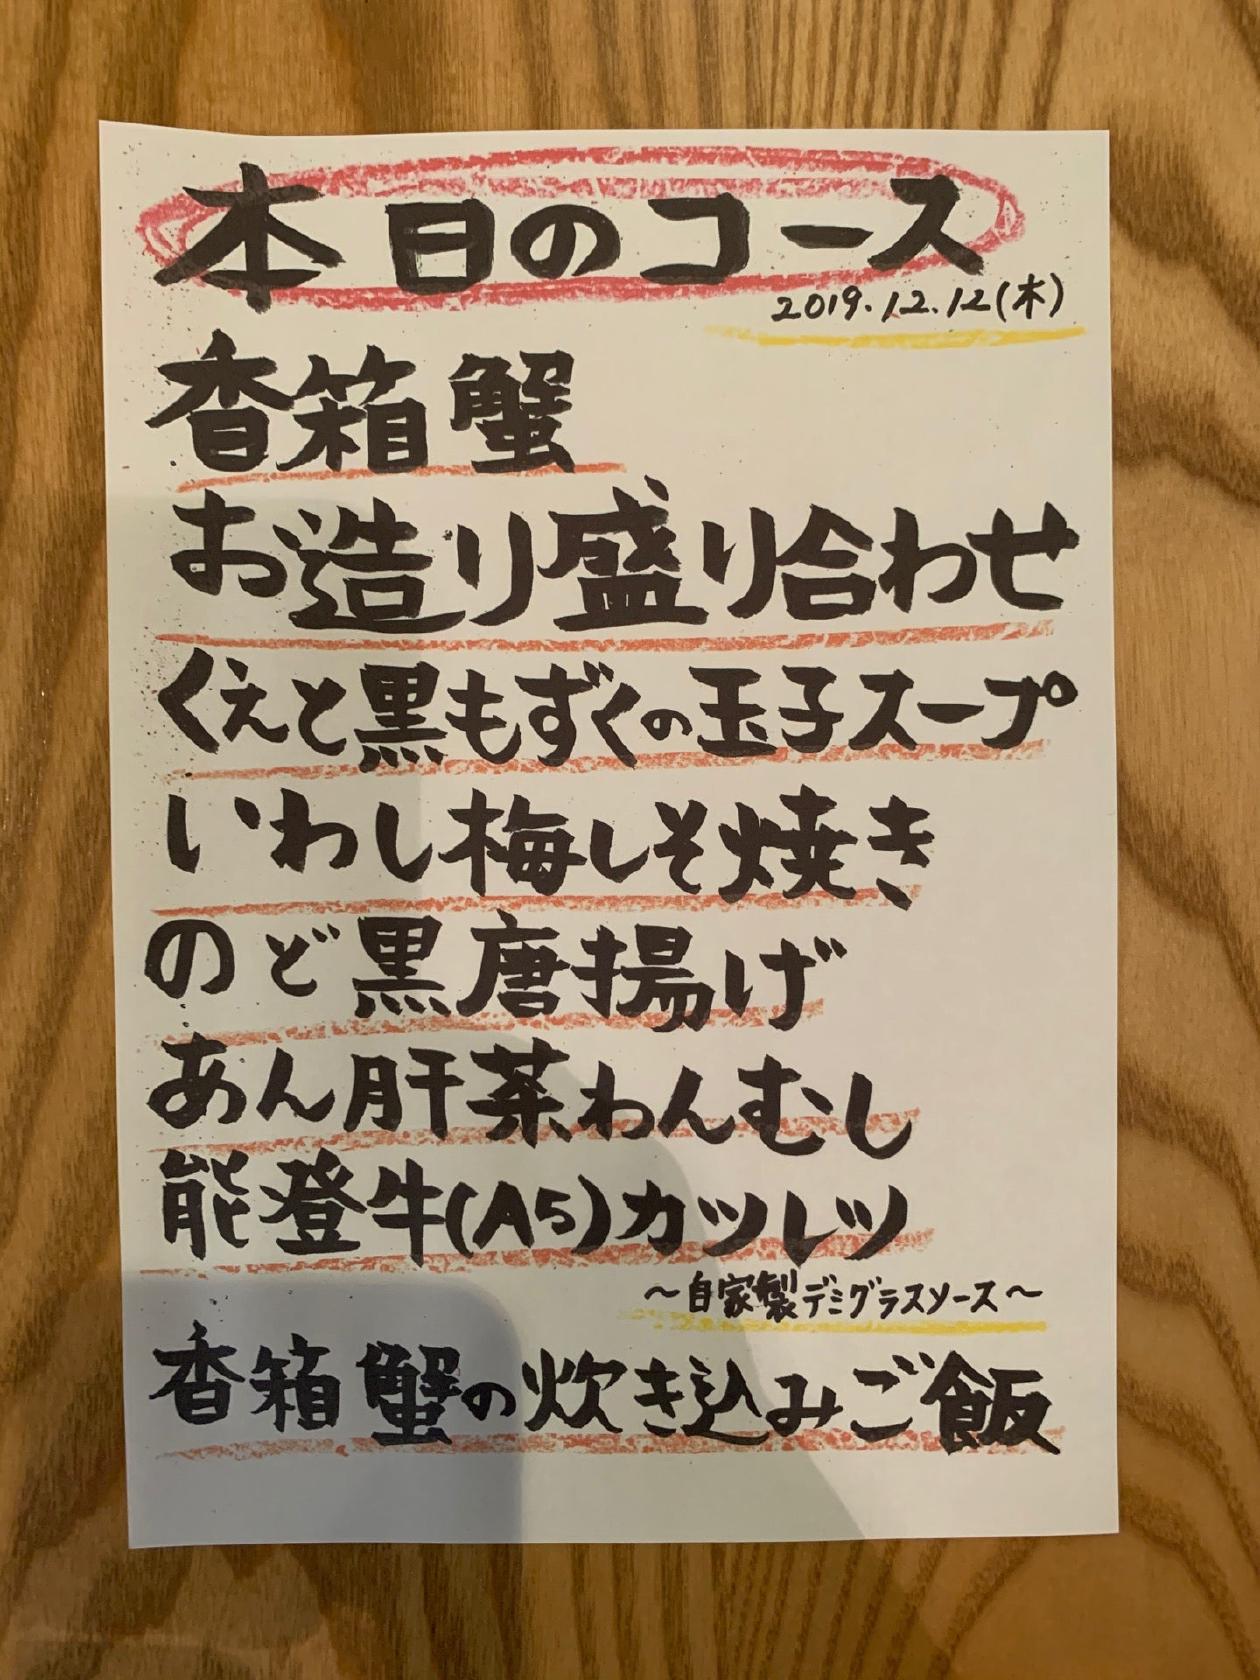 本日のコース
2019.12.12(木)
香箱蟹
お造り盛り合わせ
くえと黒もずくの玉子スープ
いわし梅しそ焼き
のど黒唐揚げ
あん肝茶わんむし
能登牛(A5)カツレツ
～自家製デミグラスソース～
香箱蟹の炊き込みご飯